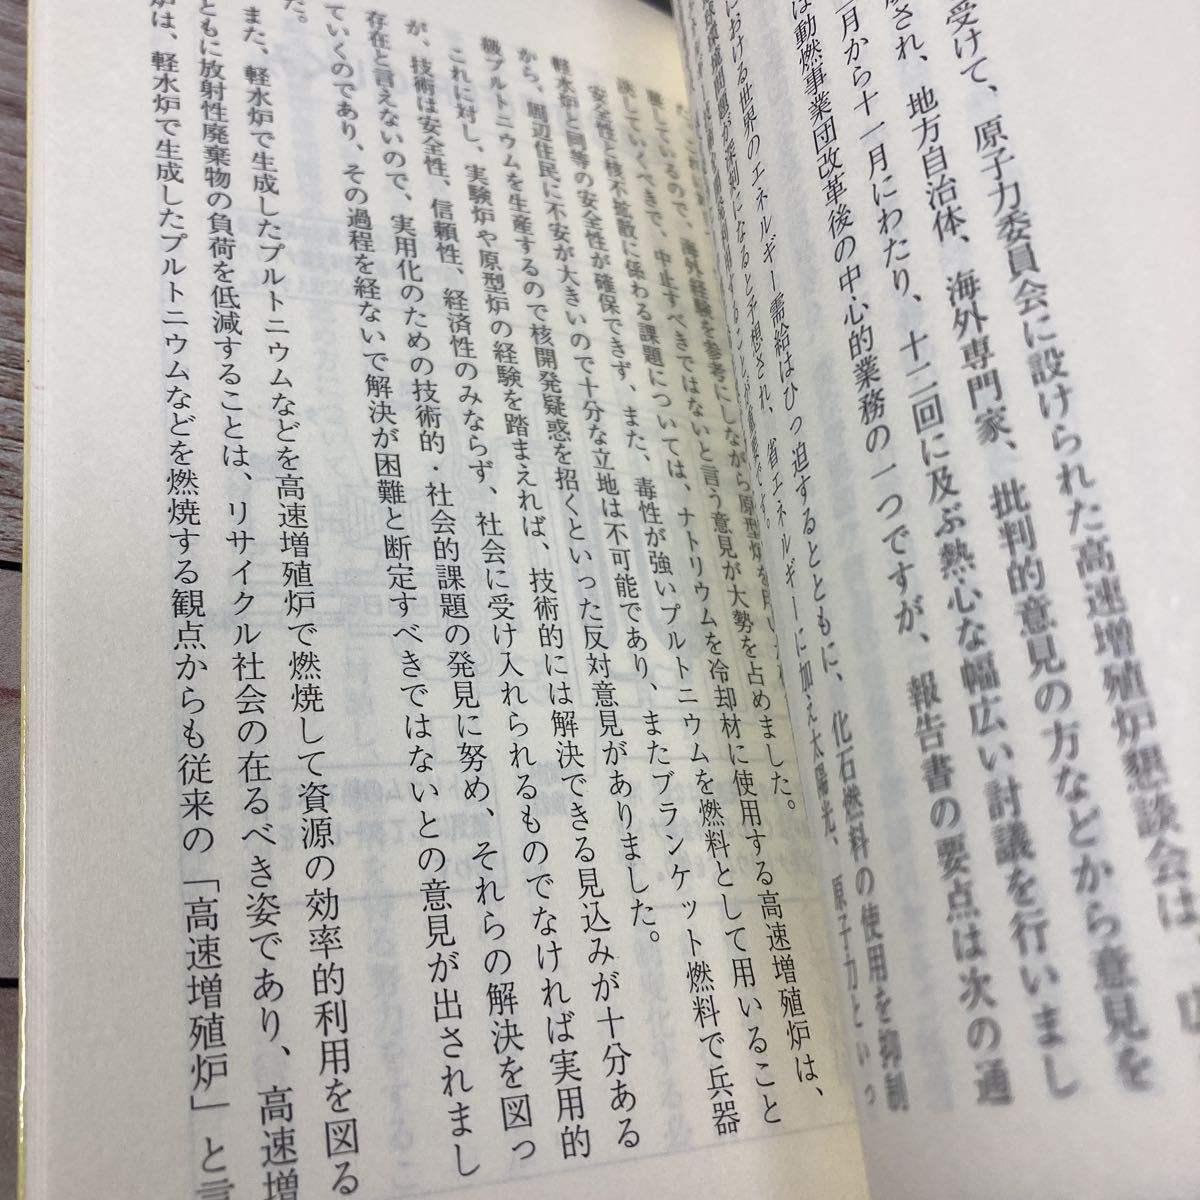 受けて、原子力委員会に設けられた高速増殖炉懇談会は、
され、地方自治体、海外専門家、批判的意見の方などから意見を
月から十一月にわたり、十二回に及ぶ熱心な幅広い討議を行いまし
は動燃事業団改革後の中心的業務の一つですが、報告書の要点は次の通
における世界のエネルギー需給はひっ迫するとともに、化石燃料の使用を抑制
環境問題が深刻になると予想され、省エネルギーに加え太陽光、原子力といっ
展しているので、海外経験を参考にしながら原型炉を
決していくべきで、中止すべきではないと言う意見が大勢を占めました。
安全性と核不拡散に係わる課題については、ナトリウムを冷却材に使用する高速増殖炉は、
軽水炉と同等の安全性が確保できず、また、毒性が強いプルトニウムを燃料として用いること
から、周辺住民に不安が大きいので十分な立地は不可能であり、またブランケット燃料で兵器
級プルトニウムを生産するので核開発疑惑を招くといった反対意見がありました。
これに対し、実験炉や原型炉の経験を踏まえれば、技術的には解決できる見込みが十分ある
が、技術は安全性、信頼性、経済性のみならず、社会に受け入れられるものでなければ実用的
存在と言えないので、実用化のための技術的・社会的課題の発見に努め、それらの解決を図っ
ていくのであり、その過程を経ないで解決が困難と断定すべきではないとの意見が出されまし
た。
また、軽水炉で生成したプルトニウムなどを高速増殖炉で燃焼して資源の効率的利用を図る
とともに放射性廃棄物の負荷を低減することは、リサイクル社会の在るべき姿であり、高速増
炉は、軽水炉で生成したプルトニウムなどを燃焼する観点からも従来の「高速増殖炉」と言